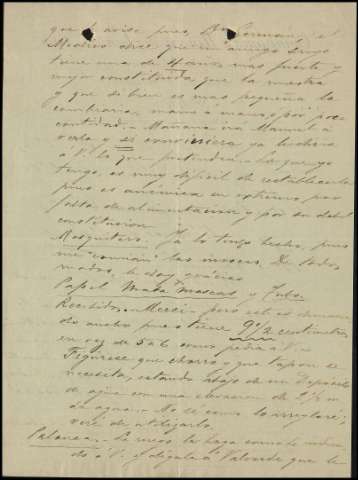 que le avise pues, Dn German, el
Medico dice que un amigo suyo
tiene una de 4 años mas fuerte y
mejor constituida que la nuestra
y que si bien es mas pequeña la
cambiaria, mano á mano, ó por poca
cantidad. - Mañana irá Manuel á
verla y si conviniera ya le diria
á V. lo que pretendia - La que yo
tengo, es muy dificil de restablecerla
pues es anémica en extremo por
falta de alimentacion y por su debil
constitucion
Mosquitero - Ya lo tengo hecho, pues
me "comian" las moscas. De todos
modos, le doy gracias
Papel Mata moscas y Tubo.
Recibidos. - Merci - pero est es demasia
do ancho pues tiene 9 1/2 centimetros
en vez de 5 a 6 como pedia á V. -
Figurese que chorro y que tapon se
necesita, estando abajo de un Deposito
de agua con una elevacion de 2 1/2 m
de agua. - No sé como lo arreglaré;
veré de utilizarlo.
Palanca. - Le ruego la haga como le indi
do á V. y digale á Valverde que le